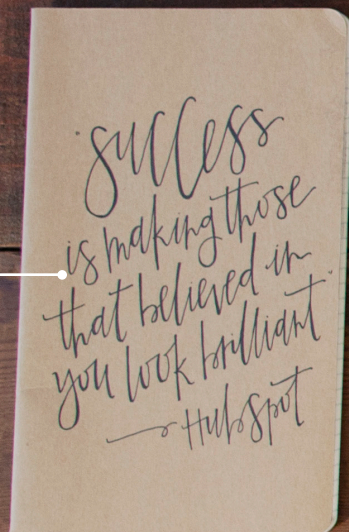 "success
is making those
that believed in
you look brilliant"
—HubSpot